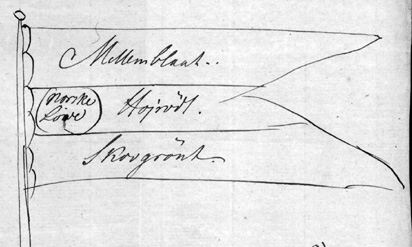 Mellemblaat..
norske
Løve
Højrödt.
Skovgrönt.